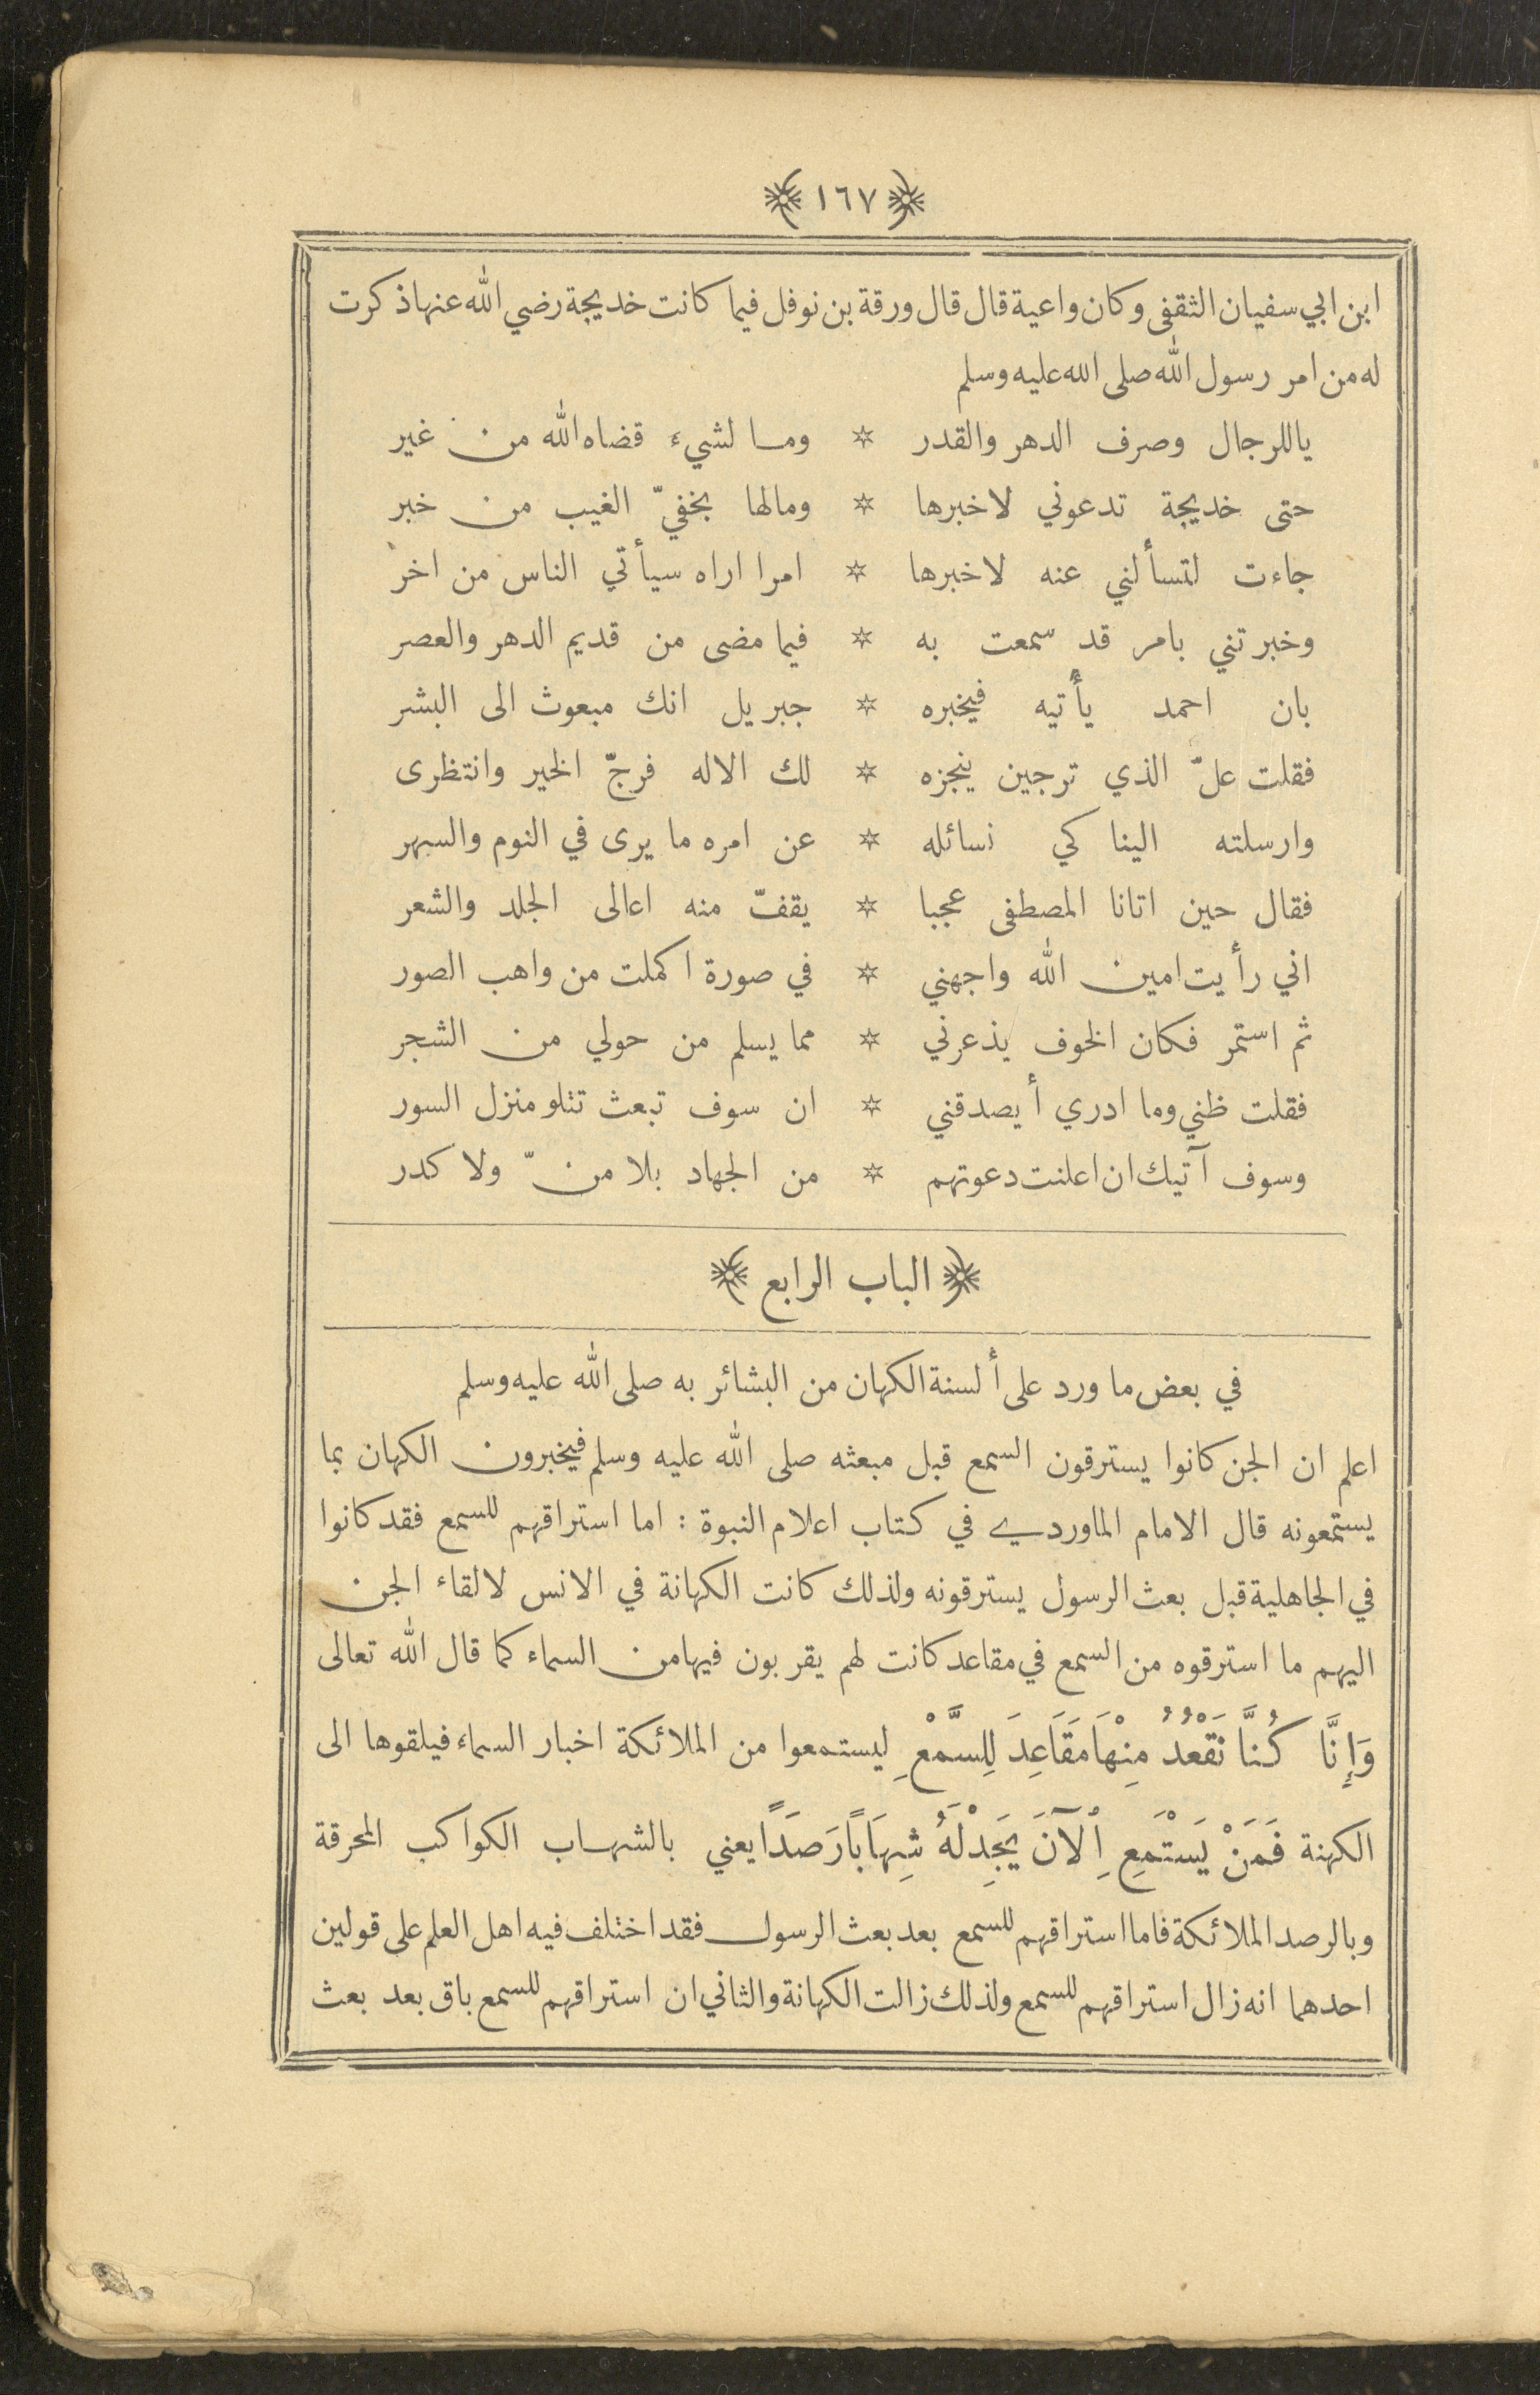 ﴿ ١٦٧ ﴾
ابن ابي سفيان الثقفى وكان واعية قال قال ورقة بن نوفل فيما كانت خديجة رضي الله عنها ذكرت
له من امر رسول الله صلى الله عليه وسلم
ياللرجال وصرف الدهر والقدر ✡ وما لشيء قضاه الله من غير
حتى خديجة تدعوني لاخبرها ✡ ومالها بخفيّ الغيب من خبر
جاءت لتسألني عنه لاخبرها ✡ امرا اراه سيأتي الناس من اخر
وخبرتني بامر قد سمعت به ✡ فيما مضى من قديم الدهر والعصر
بان احمد يأتيه فيخبره ✡ جبريل انك مبعوث الى البشر
فقلت علّ الذي ترجين ينجزه ✡ لك الاله فرجّ الخير وانتظرى
وارسلته الينا كي نسائله ✡ عن امره ما يرى في النوم والسهر
فقال حين اتانا المصطفى عجبا ✡ يقفّ منه اعالى الجلد والشعر
اني رأيت امين الله واجهني ✡ في صورة اكملت من واهب الصور
ثم استمر فكان الخوف يذعرني ✡ مما يسلم من حولي من الشجر
فقلت ظني وما ادري أيصدقني ✡ ان سوف تبعث تتلو منزل السور
وسوف آتيك ان اعلنت دعوتهم ✡ من الجهاد بلا منّ ولا كدر
﴿ الباب الرابع ﴾
في بعض ما ورد على ألسنة الكهان من البشائر به صلى الله عليه وسلم
اعلم ان الجن كانوا يسترقون السمع قبل مبعثه صلى الله عليه وسلم فيخبرون الكهان بما
يستمعونه قال الامام الماوردي في كتاب اعلام النبوة : اما استراقهم للسمع فقد كانوا
في الجاهلية قبل بعث الرسول يسترقونه ولذلك كانت الكهانة في الانس لالقاء الجن
اليهم ما استرقوه من السمع في مقاعد كانت لهم يقربون فيها من السماء كما قال الله تعالى
وَإِنَّا كُنَّا نَقْعُدُ مِنْهَا مَقَاعِدَ لِلسَّمْعِ ليستمعوا من الملائكة اخبار السماء فيلقوها الى
الكهنة فَمَنْ يَسْتَمِعِ ٱلْآنَ يَجِدْ لَهُ شِهَابًا رَصَدًا يعني بالشهاب الكواكب المحرقة
وبالرصد الملائكة فاما استراقهم للسمع بعد بعث الرسول فقد اختلف فيه اهل العلم على قولين
احدهما انه زال استراقهم للسمع ولذلك زالت الكهانة والثاني ان استراقهم للسمع باق بعد بعث